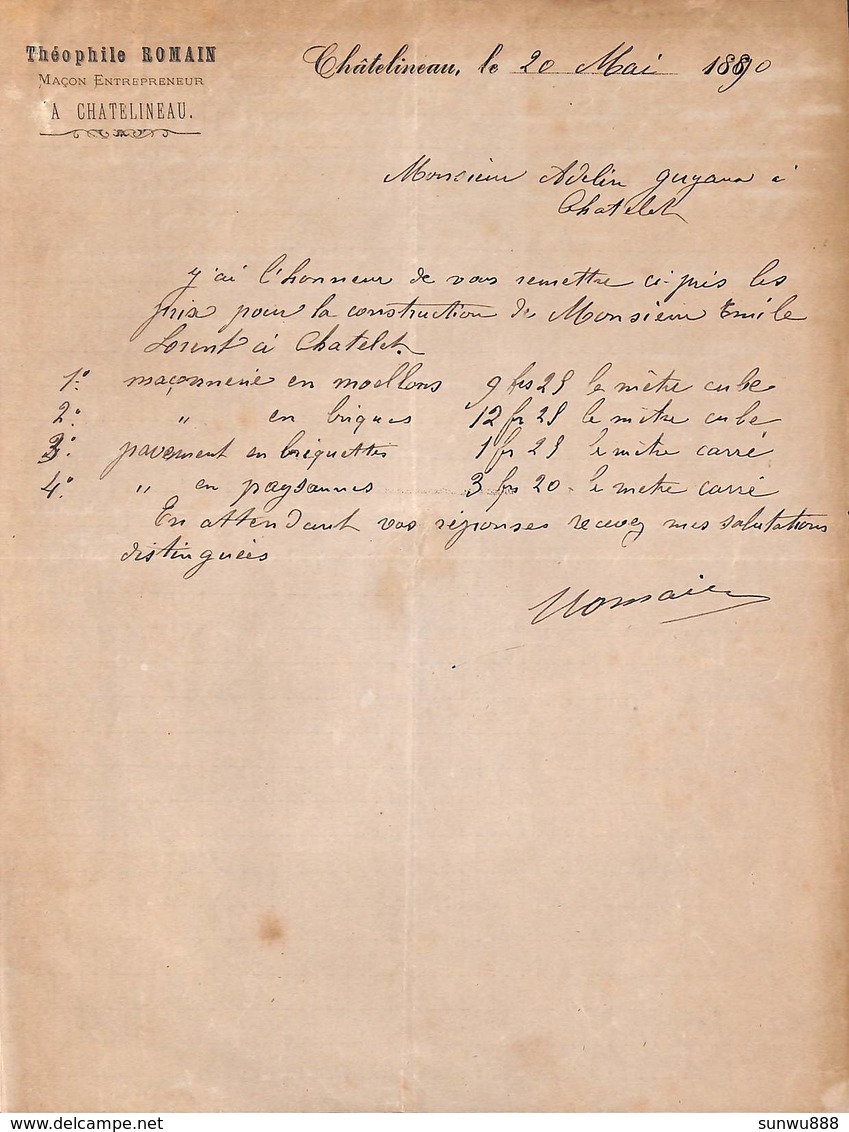 Théophile ROMAIN
MAÇON ENTREPRENEUR
A CHATELINEAU.
Châtelineau, le 20 Mai 1890
Monsieur Adelin à
Chatelet
j'ai l'honneur de vous remettre ci-près les
prix pour la construction de Monsieur Emile
Lorent à Chatelet
1° maçonnerie en moellons 9 frs 25 le mètre cube
2° " en briques 12 fr 25 le mètre cube
3° pavement en briquettes 1 fr 25 le mètre carré
4° " en paysannes 3 frs 20 - le metre carré
En attendant vos réponses recevez mes salutations
distinguées
Romain
sunwu888